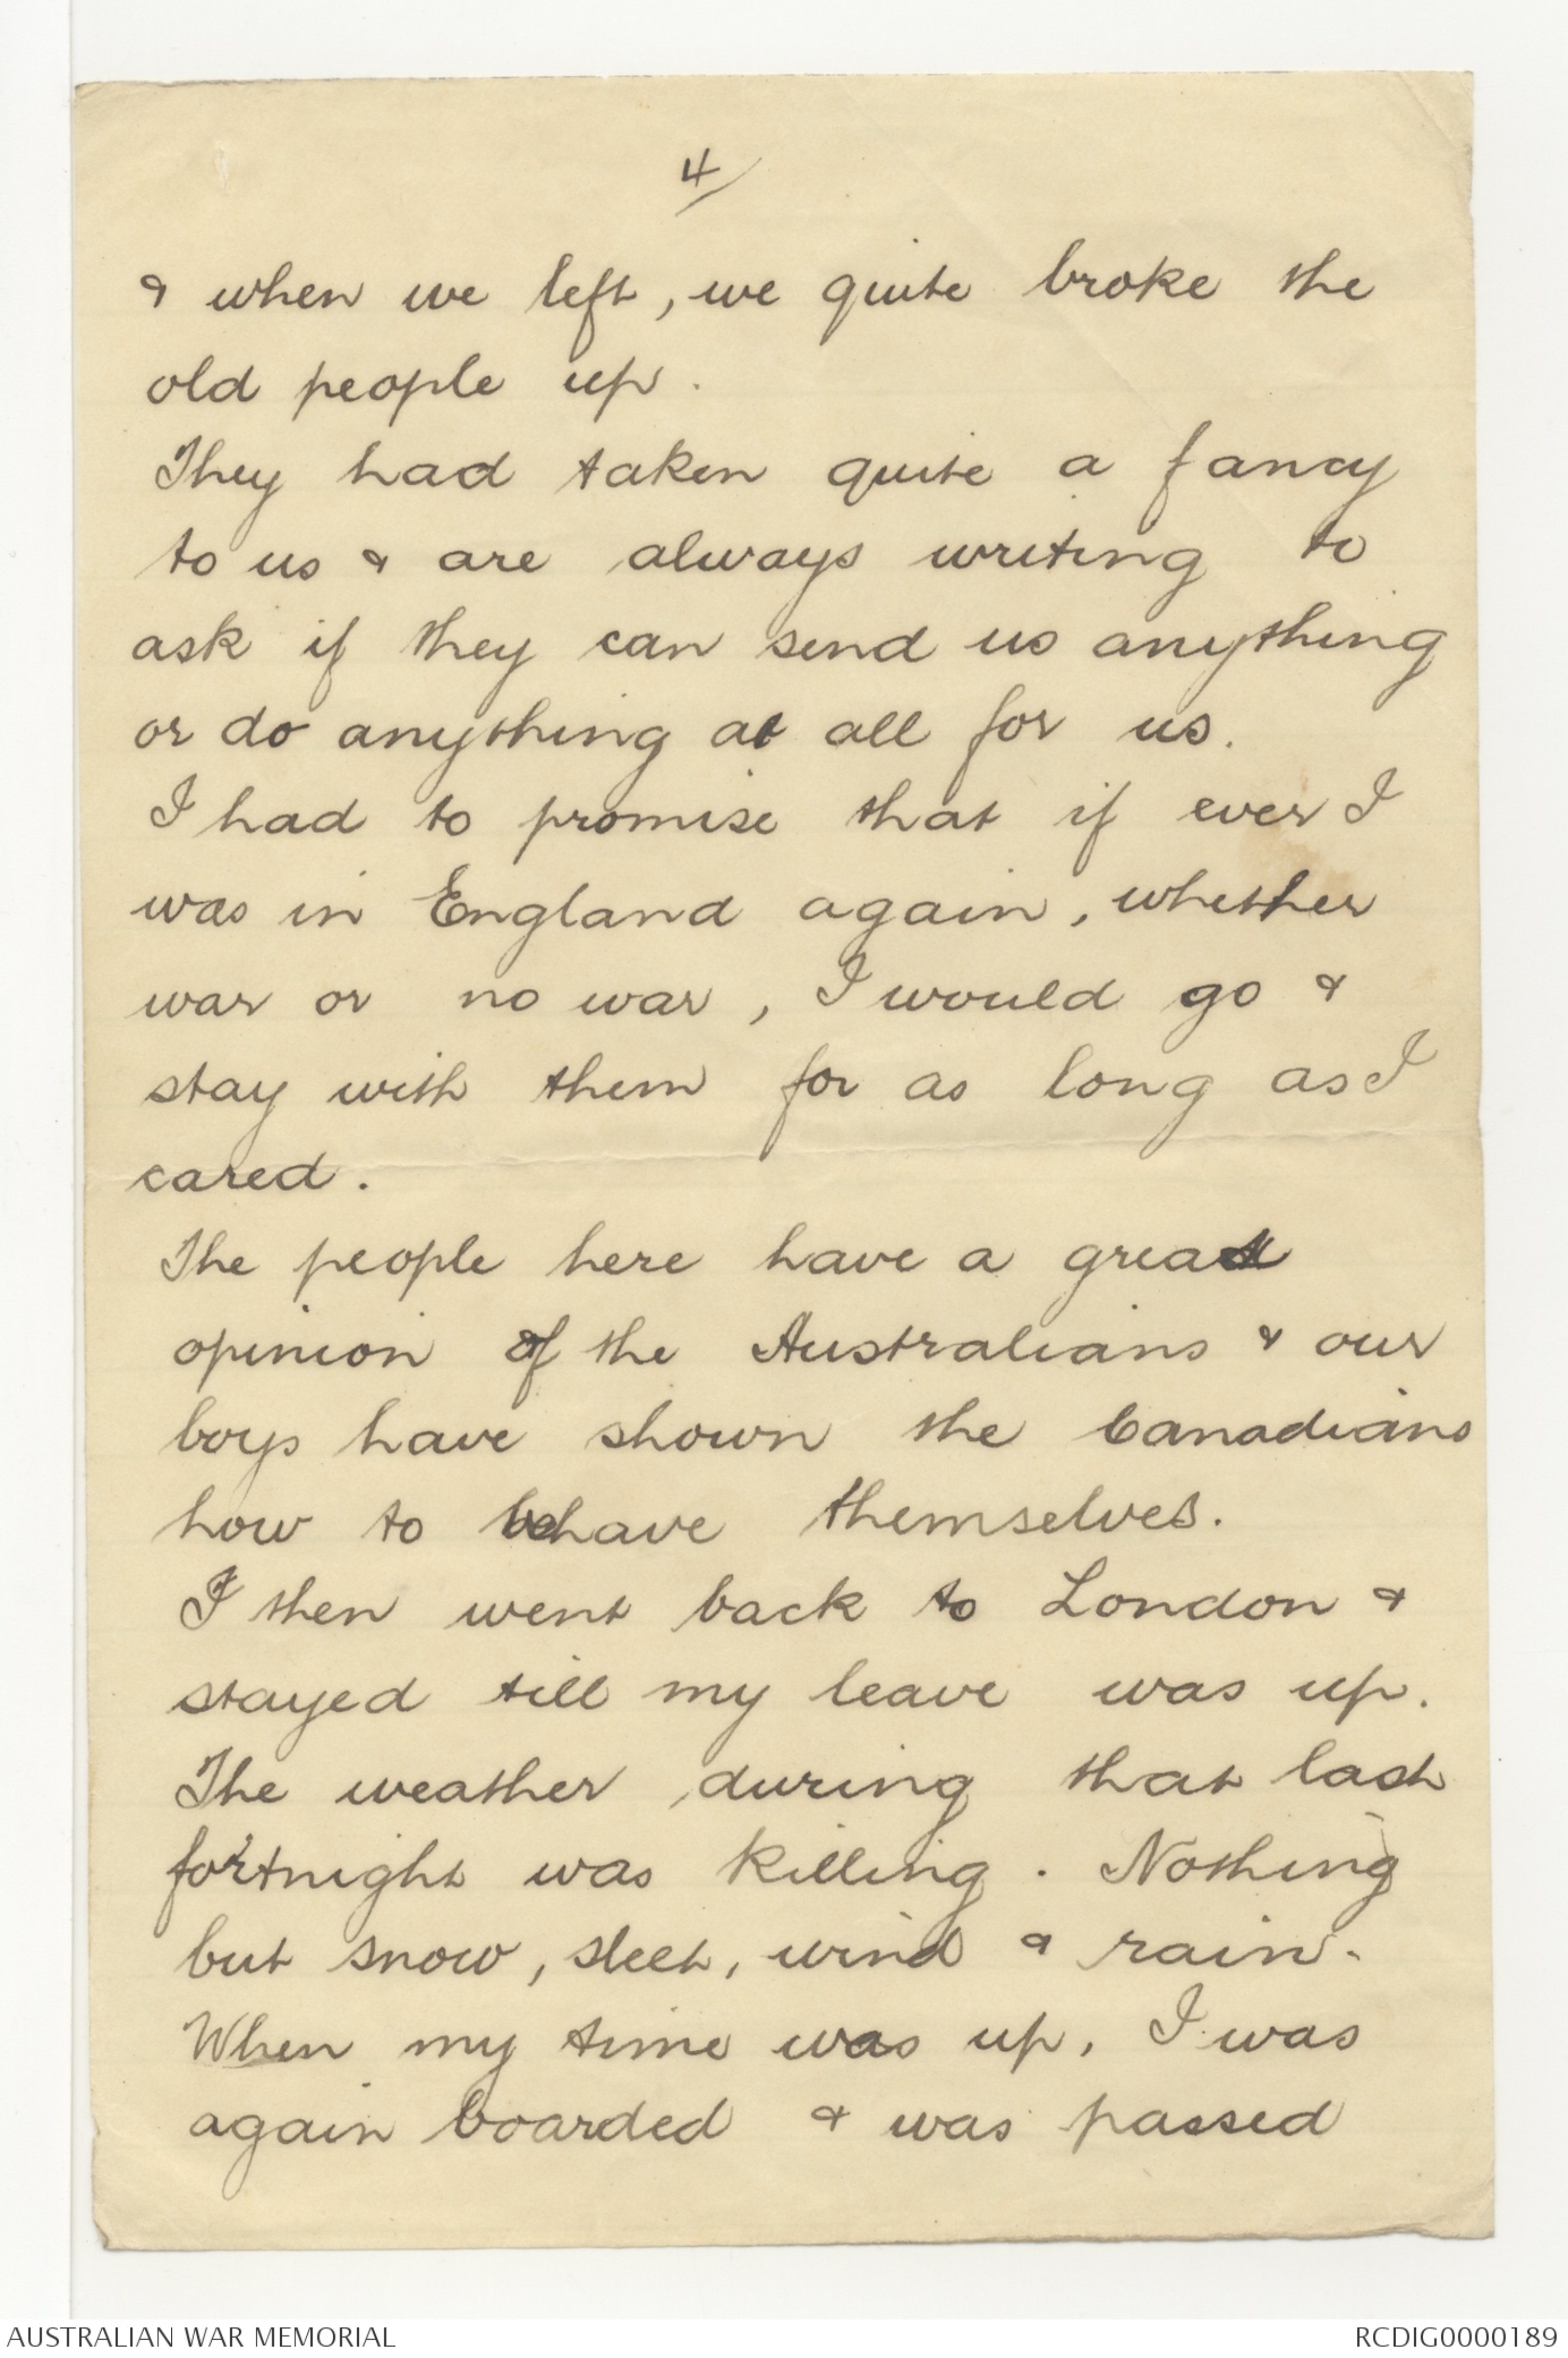 4/
& when we left, we quite broke the
old people up.
They had taken quite a fancy
to us & are always writing to
ask if they can send us anything
or do anything at all for us.
I had to promise that if ever I
was in England again, whether
war or no war, I would go &
stay with them for as long as I
cared.
The people here have a great
opinion of the Australians & our
boys have shown the Canadians
how to behave themselves.
I then went back to London &
stayed till my leave was up.
The weather during that last
fortnight was killing. Nothing
but snow, sleet, wind & rain.
When my time was up, I was
again boarded & was passed
AUSTRALIAN WAR MEMORIAL
RCDIG0000189